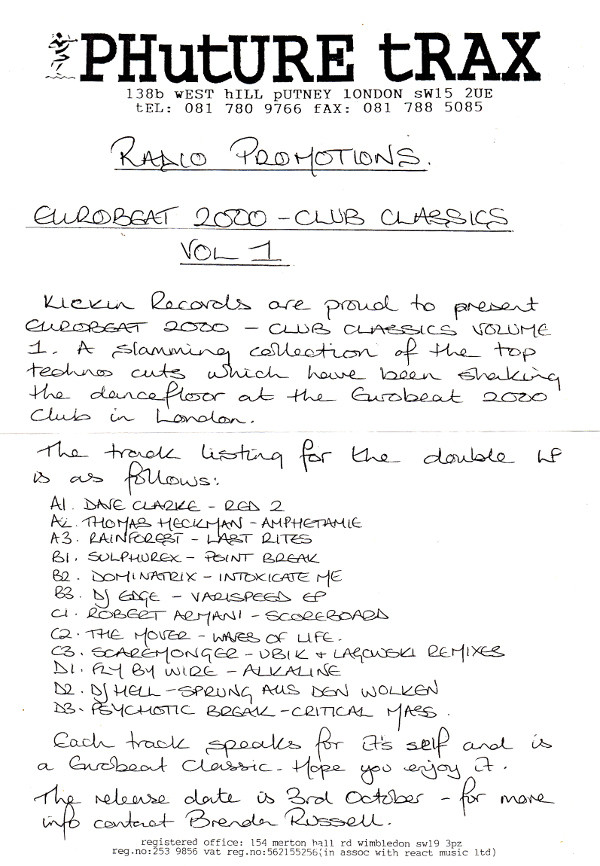 PHutURE tRAX
138b wEST hILL pUTNEY lONDON sW15 2UE
tEL: 081 780 9766 fAX: 081 788 5085
RADIO PROMOTIONS.
EUROBEAT 2000 - CLUB CLASSICS
VOL 1
Kickin Records are proud to present
EUROBEAT 2000 - CLUB CLASSICS VOLUME
1. A slamming collection of the top
techno cuts which have been shaking
the dancefloor at the Eurobeat 2000
Club in London.
The track listing for the double LP
is as follows:
A1. DAVE CLARKE - RED 2
A2. THOMAS HECKMAN - AMPHETAMIE
A3. RAINFOREST - LAST RITES
B1. SULPHUREX - POINT BREAK
B2. DOMINATRIX - INTOXICATE ME
B3. DJ EDGE - VARISPEED EP
C1. ROBERT ARMANI - SCOREBOARD
C2. THE MOVER - WAVES OF LIFE.
C3. SCAREMONGER - UBIK & LAGOWSKI REMIXES
D1. FLY BY WIRE - ALKALINE
D2. DJ HELL - SPRUNG AUS DEN WOLKEN
D3. PSYCHOTIC BREAK - CRITICAL MASS.
Each track speaks for it's self and is
a Eurobeat Classic. Hope you enjoy it.
The release date is 3rd October - for more
info contact Brenda Russell.
registered office: 154 merton hall rd wimbledon sw19 3pz
reg.no:253 9856 vat reg.no:562155256(in assoc with react music ltd)